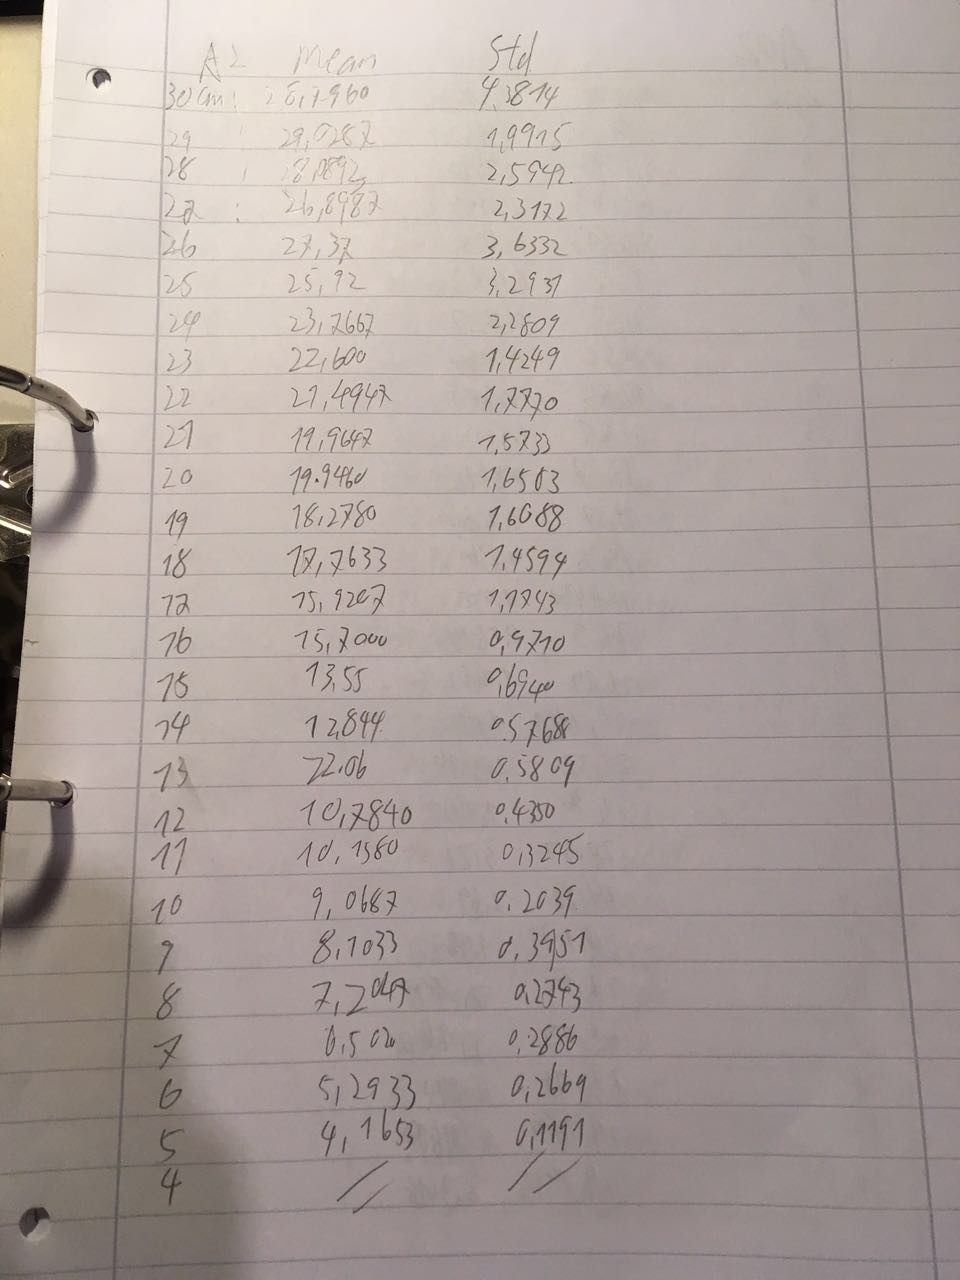 A2 Mean Std
30cm: 28,7960 4,3814
29 : 29,0287 1,9915
28 : 28,0892 2,5942
27 : 26,8987 2,3172
26 27,37 3,6332
25 25,92 3,2931
24 23,7667 2,2809
23 22,600 1,4249
22 21,4947 1,7770
21 19,9647 1,5733
20 19.9460 1,6503
19 18,2780 1,6088
18 17,7633 1,4594
17 15,9207 1,1743
16 15,7000 0,9710
15 13,55 0,6940
14 12,844 0.5768
13 22.06 0,5809
12 10,7840 0,4350
11 10,1380 0,3245
10 9,0687 0,2039
9 8,1033 0,3951
8 7,2047 0,2743
7 6,5020 0,2886
6 5,2933 0,2669
5 4,1653 0,1191
4 // //